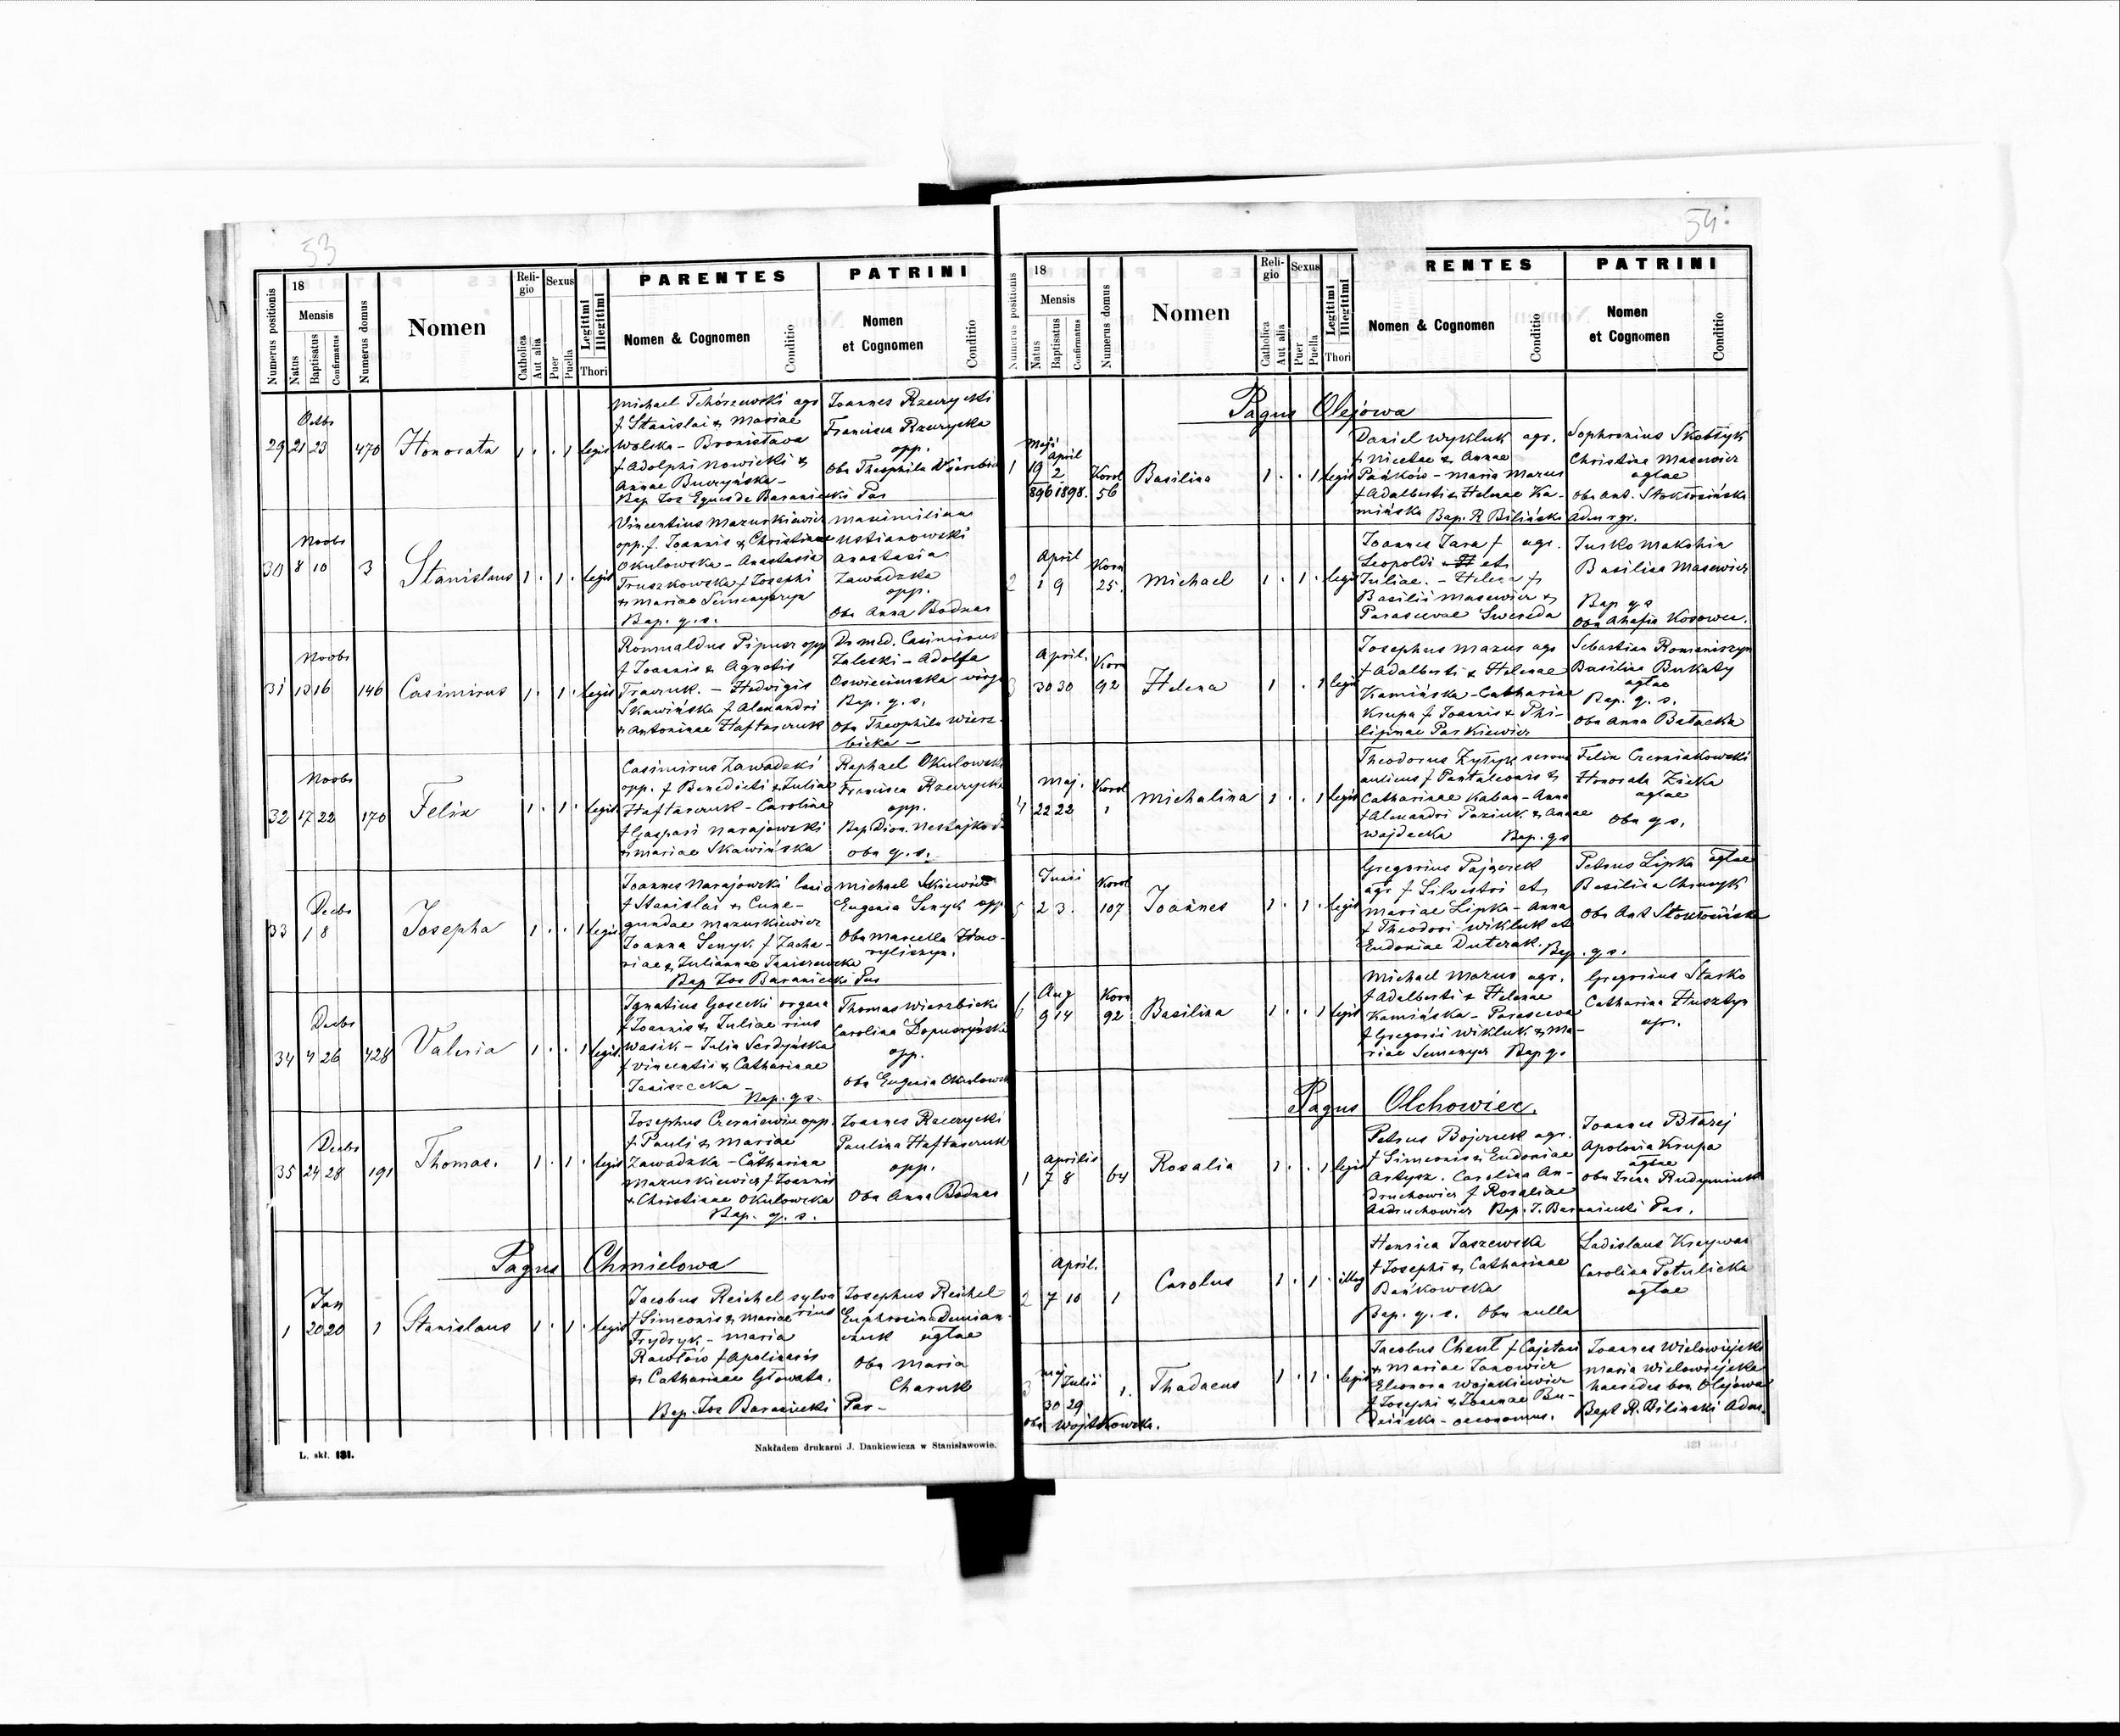 53
Numerus positionis
18
Mensis
Natus
Baptisatus
Confirmatus
Numerus domus
Nomen
Religio
Catholica
Aut alia
Sexus
Puer
Puella
Legitimi
Illegitimi
Thori
PARENTES
Nomen & Cognomen
Conditio
PATRINI
Nomen
et Cognomen
Conditio
Octbr
29 21 23 470 Honorata 1 . . 1 legit
Michael Tchórzewski agr
f Stanislai & Mariae
Wolska - Bronisława
f Adolphi Nowicki &
Annae Buczyńska -
Bap Jos Eques de Baraniecki Par
Joannes Rzewycki
Francisca Rzewycka
opp.
Obs Theophila
Novbr
30 8 10 3 Stanislaus 1 . 1 . legit
Vincentius Mazurkiewicz
opp. f. Joannis & Christianae
Okulowska - Anastasia
Truszkowska f Josephi
& Mariae
Bap. q. s.
Maximilian
Ustianowski
Anastasia
Zawadzka
opp.
Obs Anna Bodnar
Novbr
31 13 16 146 Casimirus 1 . 1 . legit
Romualdus Pipusz opp
f Joannis & Agnetis
Hedwigis
Skawińska f Alexandri
& Antoninae Haftarczuk
Dr med. Casimirus
Zaleski - Adolfa
Oswiecimska virgo
Bap. q. s.
Obs Theophila Wierz-
bicka -
Novbr
32 17 22 170 Felix 1 . 1 . legit
Casimirus Zawadzki
opp. f Benedicti & Juliae
Haftarczuk - Carolina
f Gaspari Narajowski
& Mariae Skawińska
Raphael Okulowski
Francisca Rzewycka
opp.
Bap Dion.
obs q. s.
Decbr
33 1 8 Josepha 1 . . 1 legit
Joannes Narajowski
f Stanislai & Cune-
gundae Mazurkiewicz
Joanna Senyk f Zacha-
riae & Juliannae Janiszewska
Bap Jos Baraniecki Par
Michael
Eugenia Senyk opp
Obs Marcella
Decbr
34 4 26 428 Valeria 1 . . 1 legit.
Ignatius Gosecki organa
f Joannis & Juliae rius
Wasik - Julia Serdyńska
f Vincentii & Catharinae
Janiszecka -
Bap. q s.
Thomas Wierzbicki
Carolina Łopuszyńska
opp.
Obs Eugenia Okulowska
Decbr
35 24 28 191 Thomas. 1 . 1 . legit
Josephus Czerniewicz opp.
f Pauli & Mariae
Zawadzka - Catharina
Mazurkiewicz f Joannis
& Christianae Okulowska
Bap. q. s.
Joannes Rzewycki
Paulina Haftarczuk
opp.
Obs Anna Bodnar
Pagus Chmielowa
Jan
1 20 20 1 Stanislaus 1 . 1 . legit
Jacobus Reichel sylva
f Simeonis & Mariae rius
Frydryk - Maria
Rawłów f Apolinaris
& Catharinae Głowata.
Bap. Jos Baraniecki Par -
Josephus Reichel
Euphrosina Demian-
czuk agtae
Obs Maria
Charuk
L. skł. 131.
Nakładem drukarni J. Dankiewicza w Stanisławowie.
54
Numerus positionis
18
Mensis
Natus
Baptisatus
Confirmatus
Numerus domus
Nomen
Religio
Catholica
Aut alia
Sexus
Puer
Puella
Legitimi
Illegitimi
Thori
RENTES
Nomen & Cognomen
Conditio
PATRINI
Nomen
et Cognomen
Conditio
Pagus Olejowa
Maji April
1 19 2 Korol
896 1898. 56 Basilina 1 . . 1 legit
Daniel Wykluk agr.
f Nicetae & Annae
Pańków - Maria Mazur
f Adalberti & Helenae Ka-
mińska Bap. R Biliński Adm r gr.
Sophronius Skobłyk
Christina Masewicz
agtae
Obs Ant. Stokłosińska
April Korn
2 1 9 25. Michael 1 . 1 . legit
Joannes Jara f agr.
Leopoldi et
Juliae. - Helena f
Basilii Masewicz &
Parascevae Swereda
Jusko Makohin
Basilina Masewicz
Bap q s
Obs Ahafia Kosowcz.
April. Korn
3 30 30 92 Helena 1 . 1 legit
Josephus Mazur agr
f Adalberti & Helenae
Kamińska - Catharina
Krupa f Joannis & Phi-
lipinae Paskiewicz
Sebastian Romaniszyn
Basilina Bukaty
agtae
Bap. q. s.
Obs Anna Bałacka
Maj. Korol
4 22 22 1 Michalina 1 . . 1 legit
Theodorus Zytyk servus
aulicus f Pantaleonis &
Catharinae Kaban - Anna
f Alexandri Paziuk & Annae
Wojdecka Bap. q s
Felix Czerniakowski
Honorata Zicka
agtae
Obs q s.
Junii Korol
5 2 3. 107 Joannes 1 . 1 . legit
Gregorius Pajączek
agr f Silvestri et
Mariae Lipka - Anna
f Theodori Wikluk et
Eudoxiae Duterak. Bap. q. s.
Petrus Lipka agtae
Basilina
Obs Ant Stokłosińska
Aug Korn
6 9 14 92 Basilina 1 . . 1 legit
Michael Mazur agr.
f Adalberti & Helenae
Kamińska - Parasceva
f Gregorii Wikluk & Ma-
riae Bap q.
Gregorius Stasko
Catharina Husztyn
agr.
Pagus Olchowiec.
Aprilis
1 7 8 64 Rosalia 1 . . 1 legit
Petrus Bojczuk agr.
f Simeonis & Eudoxiae
Artysz. Carolina An-
druchowicz f Rosaliae
Andruchowicz Bap. J. Baraniecki Par.
Joannes Błażej
Apolonia Krupa
agtae
Obs Irena
April.
2 7 10 1 Carolus 1 . 1 . illeg
Henrica Jaszewska
f Josephi & Catharinae
Bańkowska
Bap. q. s. Obs nulla
Ladislaus Krzywoń
Carolina Potulicka
agtae
Maj Julii
3 30 29 1. Thadaeus 1 . 1 . legit
Obs Wojtkowska.
Jacobus Chent f Cajetani
& Mariae Janowicz
Eleonora Wojakiewicz
f Josephi & Joannae Bu-
oeconomus.
Joannes Wielowiejski
Maria Wielowiejska
haeredes bon Olejowa
Bapt R. Bilinski Adm.